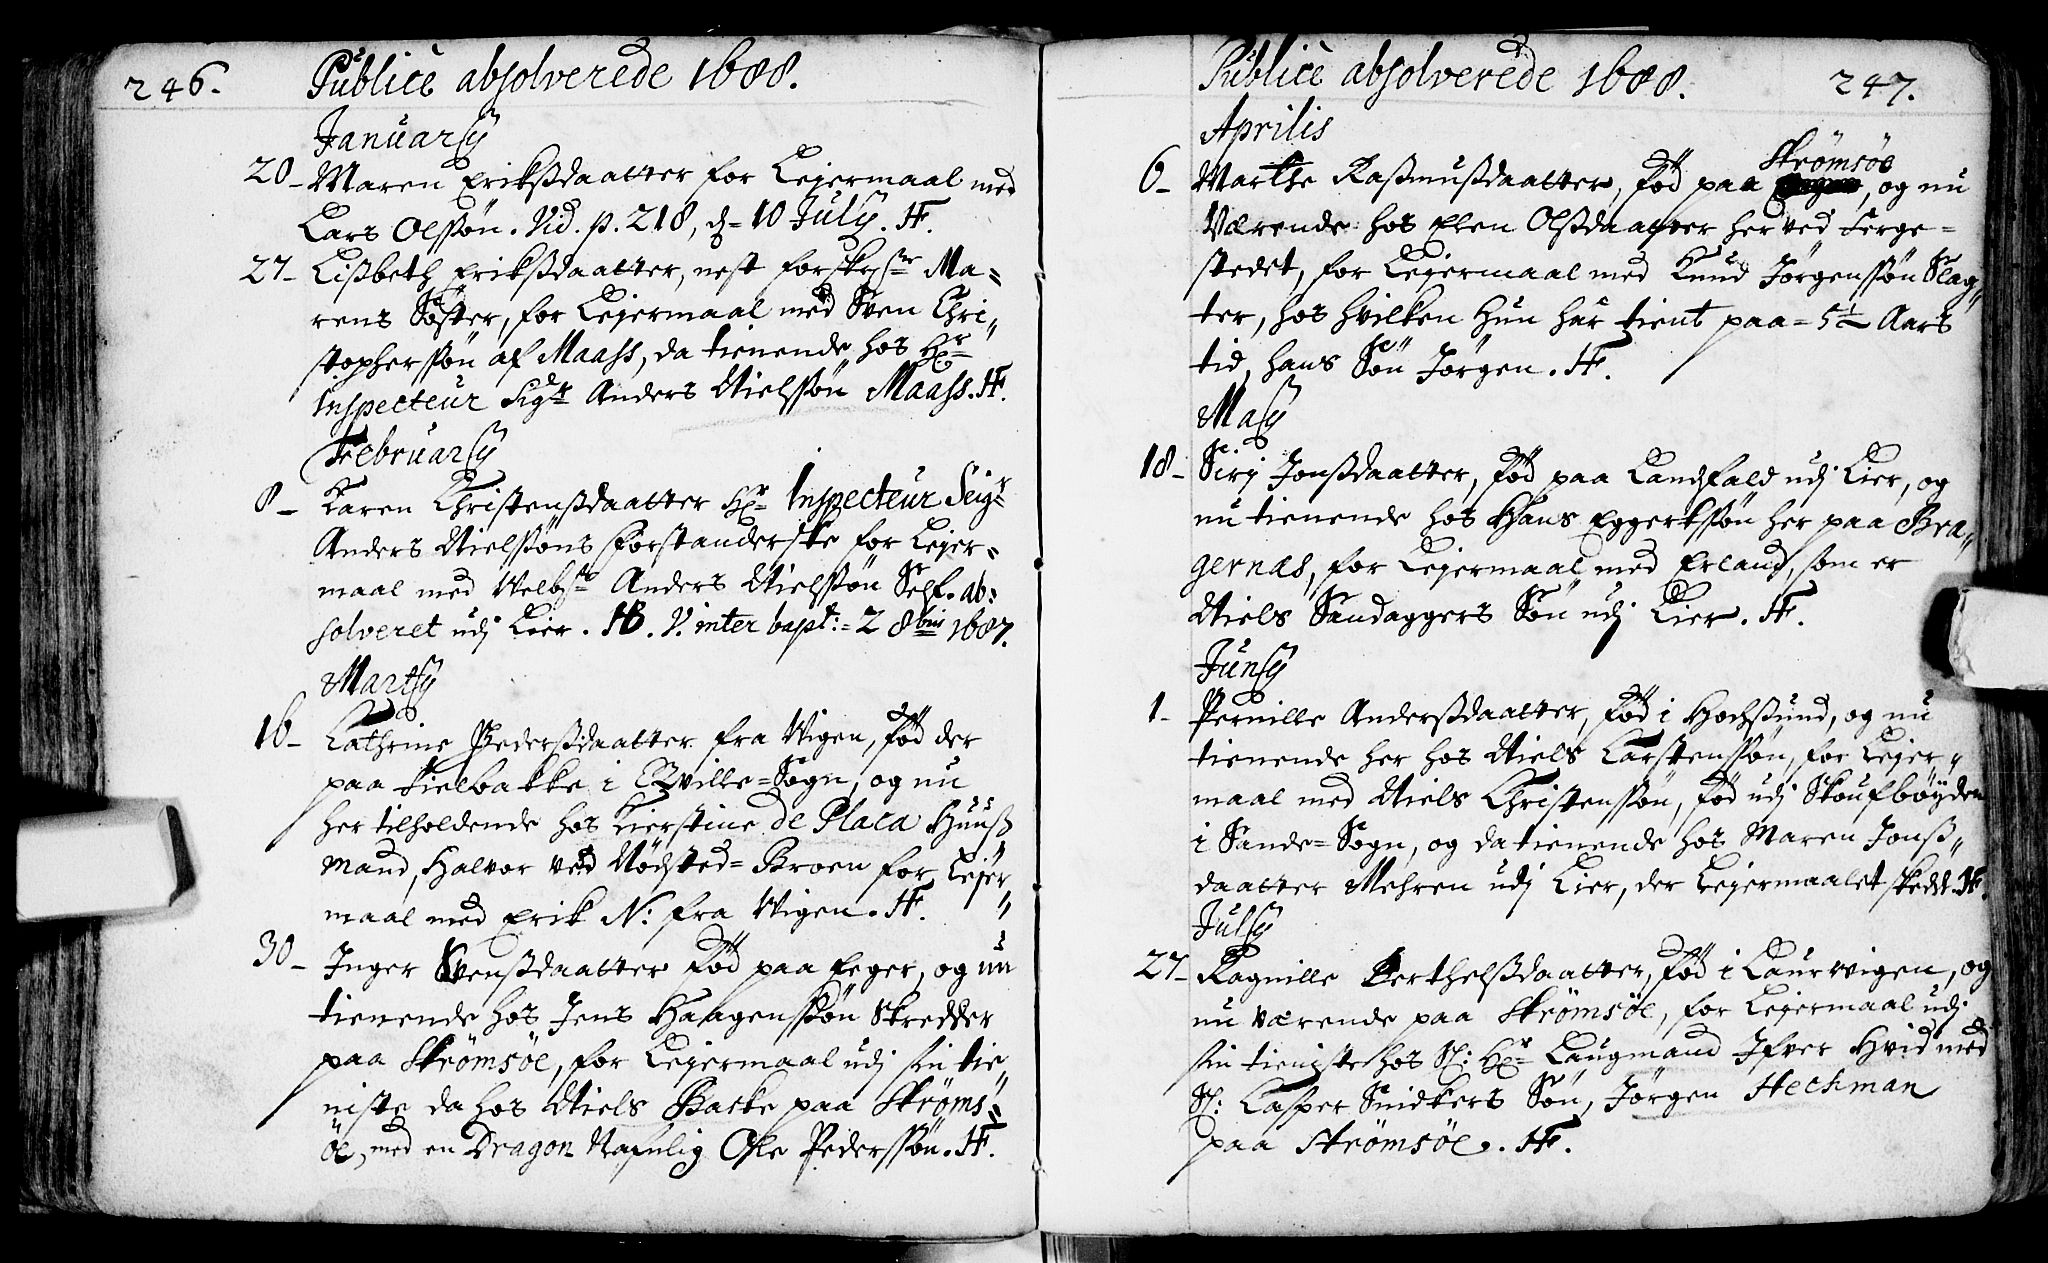 246. Publicè absolverede 1688.
Januarij
20_ Maren Eriksdaatter for Leyermaal med
Lars Olssøn. Vid. p. 218, d= 10 Julij. H.
27_ Lisbeth Eriksdaatter, nest forskrne Ma=
rens Søster, for Leyermaal med Sven Chri=
stopherssøn af Maass, da tienende hos Hr
Inspecteur Sigr Anders Nielssøn Maass. H.
Februarij
8_ Karen Christensdaatter Hr Inspecteur Seigr
Anders Nielssøns Forstanderske for Leyer=
maal med Anders Nielssøn Self. ab=
solveret udj Lier. HB. V. inter bapt:= 2 8bris 1687.
Martij
16_ Cathrine Pedersdaatter fra Wigen, Fød der
paa Fielbakke i Qville=Sogn, og nu
her tilholdende hos Kierstine de Placa Huuss
mand, Halvor ved Nødsted=Broen for Leyer=
maal med Erik N: fra Wigen. H.
30_ Inger Svensdaatter Fød paa Eeger, og nu
tienende hos Jens Haagenssøn Skredder
paa Strømsøe, for Leyermaal udj sin tie=
niste da hos Niels Barke paa Strøms=
øe, med en Dragon Nafnlig Ole Pederssøn. H.
Publicè absolverede 1688. 247.
Aprilis
6_ Marthe Rasmusdaatter, Fød paa Strømsøe, og nu
Værende hos Elen Olsdaatter her ved Ferge=
stedet, for Leyermaal med Knud Jørgenssøn Slag=
ter, hos hvilken Hun har tient paa = 5½ Aars
tid, hans Søn Jørgen. H.
Maij
18_ Sirj Jonsdaatter, Fød paa Landfald udj Lier, og
nu tienende hos Hans Eggertssøn her paa Bra=
gernæs, for Leyermaal med Erland, som er
Niels Sandaggers Søn udj Lier. H.
Junij
1_ Pernille Andersdaatter, Fød i Hochsund, og nu
tienende her hos Niels Carstenssøn, for Leyer=
maal med Niels Christenssøn, Fød udj Skoufbøyden
i Sande=Sogn, og da tienende hos Maren Jons=
daatter Mehren udj Lier, der Leyermaalet skedde. H.
Julij
27_ Ragnille Berthelsdaatter, Fød i Laurwigen, og
nu Værende paa Strømsøe, for Leyermaal udj
sin tieniste hos Sl: Hr Laugmand Ifver Hvid med
Sl: Casper Snidkers Søn, Jørgen Heckman
paa Strømsøe. H.